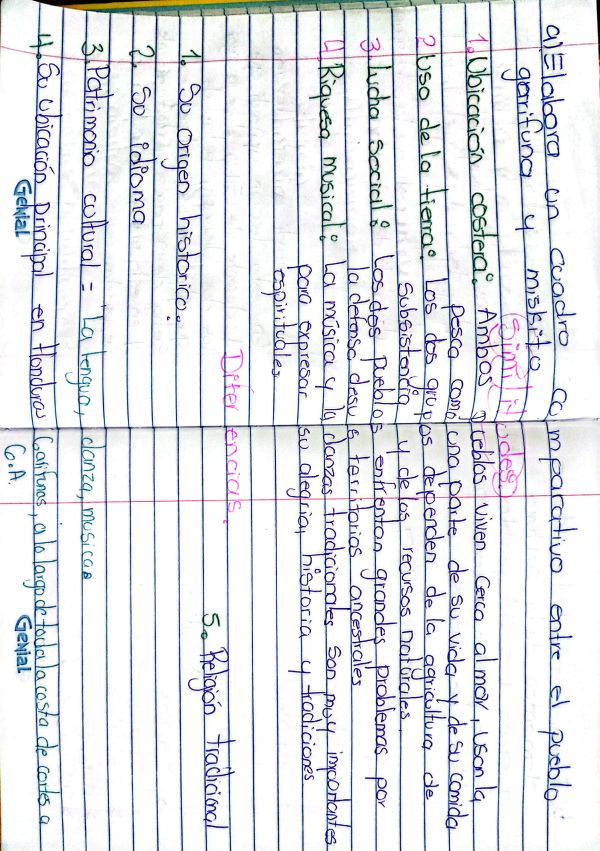 a) Elabora un cuadro comparativo entre el pueblo
garifuna y missito
Similitudes
1. Ubicación costera: Ambos pueblos viven cerca al mar, usan la
pesca como una parte de su vida y de su comida
2. Uso de la tierra: Los dos grupos dependen de la agricultura de
subsistencia y de los recursos naturales
3. Lucha social: Los dos pueblos enfrentan grandes problemas por
la defensa de su s territorios ancestrales
4. Riquesa musical: La música y la danzas tradicionales son muy importantes
para expresar su alegria, historia y tradiciones
espirituales.
Diferencias.
1. Su origen historico.
2. Su idioma
3. Patrimonio cultural = "La lengua, danza, musica.
4. Su ubicación principal en Honduras Garifunas, a lo largo de toda la costa de cortes a
G.A.
5. Religión tradicional
Genial
Genial